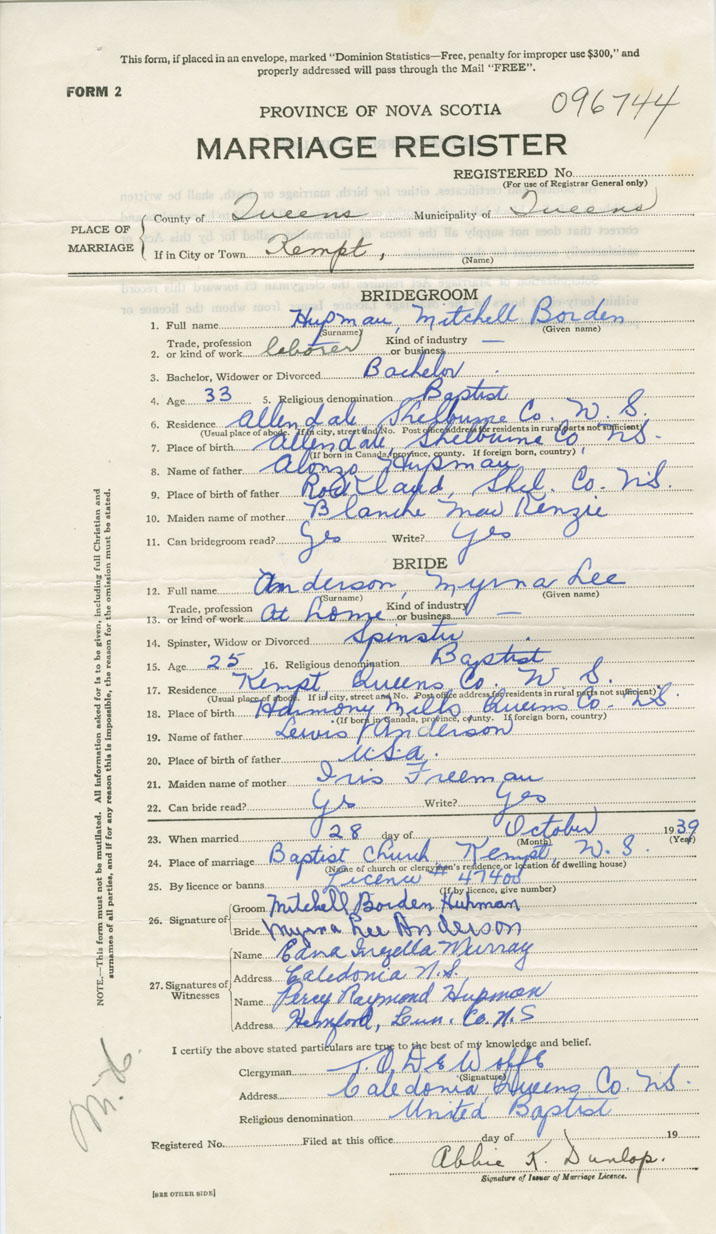 This form, if placed in an envelope, marked "Dominion Statistics—Free, penalty for improper use $300," and
properly addressed will pass through the Mail "FREE".
FORM 2
PROVINCE OF NOVA SCOTIA 096744
MARRIAGE REGISTER
REGISTERED No.
(For use of Registrar General only)
PLACE OF MARRIAGE
County of Queens Municipality of Queens
If in City or Town Kempt,
(Name)
BRIDEGROOM
1. Full name Hupman, Mitchell Borden
(Surname) (Given name)
2. Trade, profession or kind of work laborer Kind of industry or business —
3. Bachelor, Widower or Divorced Bachelor.
4. Age 33 5. Religious denomination Baptist
6. Residence Allendale, Shelburne Co. N. S.
(Usual place of abode. If in city, street and No. Post office address for residents in rural parts not sufficient)
7. Place of birth Allendale, Shelburne Co NS.
(If born in Canada, province, county. If foreign born, country)
8. Name of father Alonzo Hupman
9. Place of birth of father Rockland, Shel. Co. N.S.
10. Maiden name of mother Blanche MacKenzie
11. Can bridegroom read? Yes Write? Yes
BRIDE
12. Full name Anderson, Myrna Lee
(Surname) (Given name)
13. Trade, profession or kind of work At home Kind of industry or business —
14. Spinster, Widow or Divorced Spinster
15. Age 25 16. Religious denomination Baptist
17. Residence Kempt Queens Co. N S.
(Usual place of abode. If in city, street and No. Post office address for residents in rural parts not sufficient)
18. Place of birth Harmony Mills, Queens Co. N.S
(If born in Canada, province, county. If foreign born, country)
19. Name of father Lewis Anderson
20. Place of birth of father U.S.a.
21. Maiden name of mother Iris Freeman
22. Can bride read? Yes Write? Yes
23. When married 28 day of October 1939
(Month) (Year)
24. Place of marriage Baptist Church Kempt, N. S.
(Name of church or clergymen's residence or location of dwelling house)
25. By licence or banns Licence 47400
(If by licence, give number)
26. Signature of
Groom Mitchell Borden Hupman
Bride Myrna Lee Anderson
27. Signatures of Witnesses
Name Edna Murray
Address Caledonia N.S.
Name Percy Raymond Hupman
Address Hemford, Lun. Co. N.S
I certify the above stated particulars are true to the best of my knowledge and belief.
Clergyman T. O. DeWolfe
(Signature)
Address Caledonia, Queens Co. NS.
Religious denomination United Baptist
Registered No. Filed at this office day of 19
Abbie K. Dunlop.
Signature of Issuer of Marriage Licence.
[SEE OTHER SIDE]
NOTE.—This form must not be mutilated. All information asked for is to be given, including full Christian and
surnames of all parties, and if for any reason this is impossible, the reason for the omission must be stated.